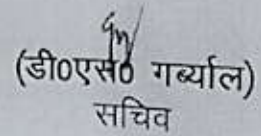 (डी०एस० गर्ब्याल)
सचिव